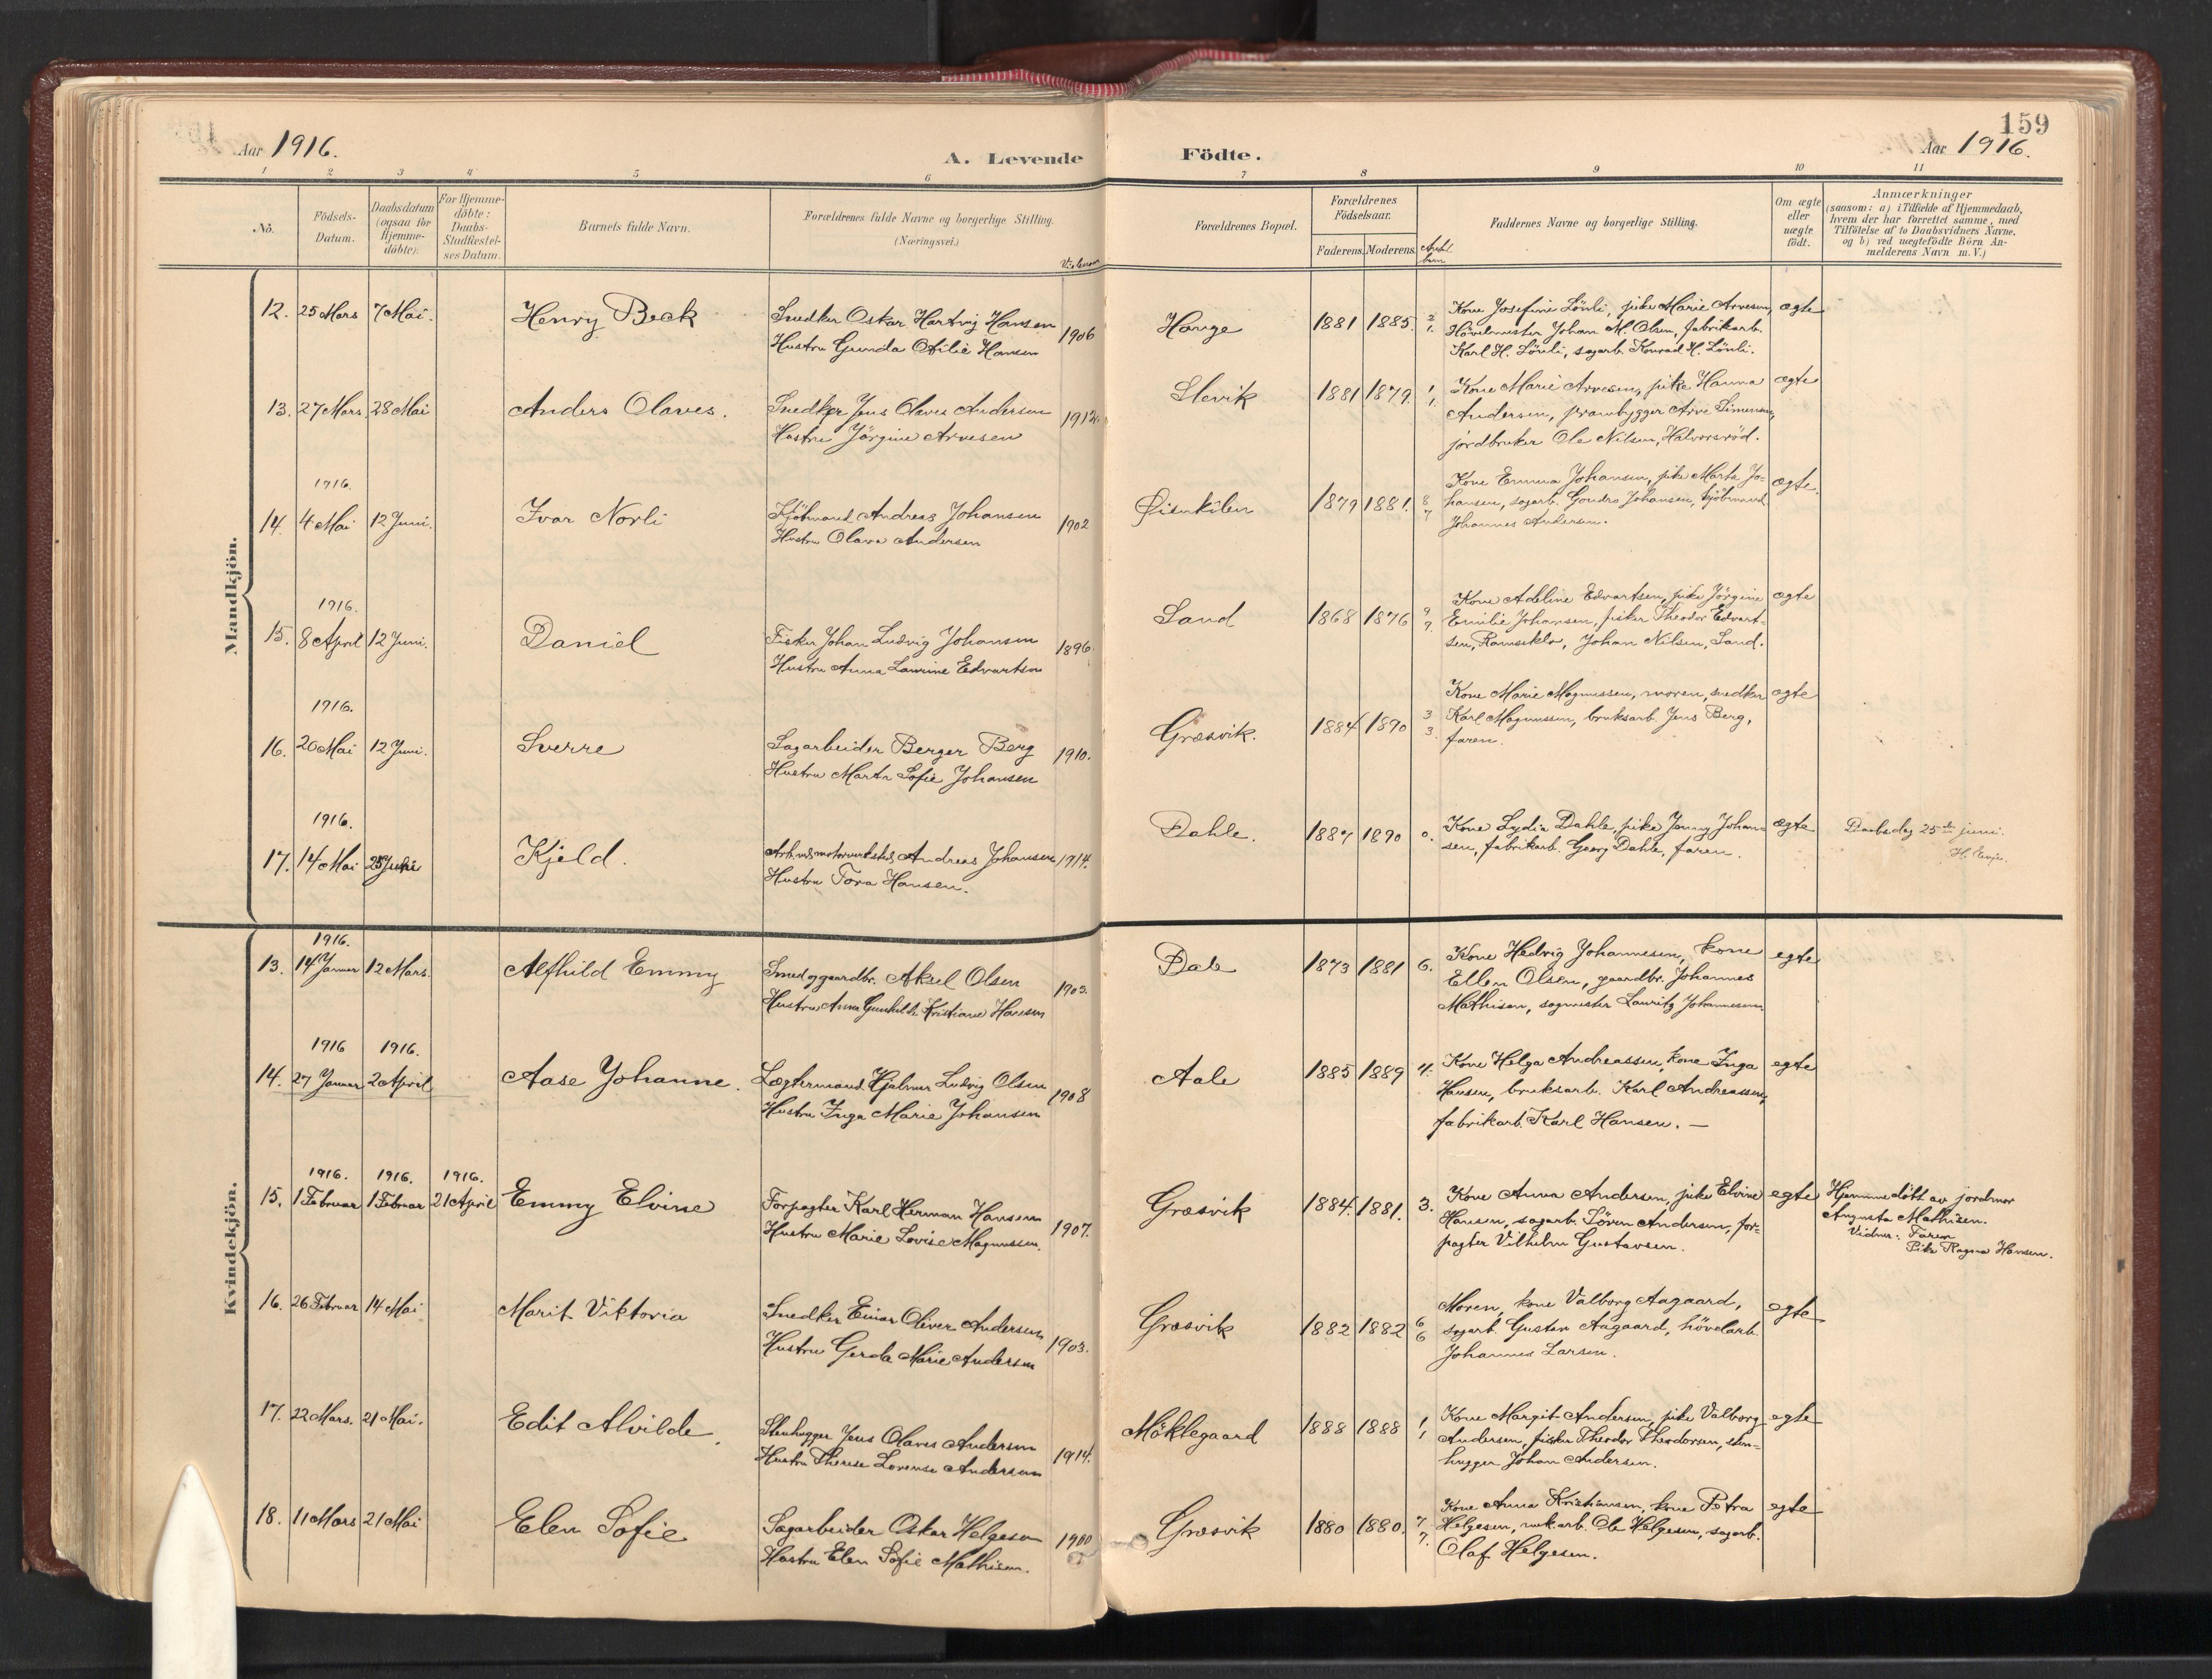 159
Aar 1916.
A. Levende Födte.
Aar 1916.
1 2 3 4 5 6 7 8 9 10 11
Nö.
Födsels-
Datum.
Daabsdatum
(ogsaa for
Hjemme-
döbte).
For Hjemme-
döbte:
Daabs-
Stadfæstel-
ses Datum.
Barnets fulde Navn.
Forældrenes fulde Navne og borgerlige Stilling.
(Næringsvei.)
Forældrenes Bopæl.
Forældrenes
Födselsaar.
Faderens. Moderens.
Faddernes Navne og borgerlige Stilling.
Om ægte
eller
uægte
födt.
Anmærkninger
(saasom: a) i Tilfælde af Hjemmedaab,
hvem der har forrettet samme, med
Tilföielse af to Daabsvidners Navne,
og b) ved uegtefödte Börn An-
melderens Navn m.V.)
Mandkjön.
12. 25 Mars 7 Mai. Henry Beck
Snedker Oskar Hartvig Hansen
Hustru Gunda Otilie Hansen
1906 Hauge 1881 1885. 2 1.
Kone Josefine Lönli, pike Marie Arvesen,
Hövelmester Johan M. Olsen, fabrikarb.
Karl H. Lönli, sagarb. Konrad H. Lönli.
ægte
13. 27 Mars 28 Mai Anders Olaves.
Snedker Jens Olaves Andersen
Hustru Jörgine Arvesen
1912. Slevik 1881 1879. 1 1.
Kone Marie Arvesen, pike Hanna
Andersen, prambygger Arve Simensen,
jordbruker Ole Nilsen, Halvorsröd.
ægte
1916.
14. 4 Mai 12 Juni. Ivar Norli
Kjöbmand Andreas Johansen
Hustru Olava Andersen
1902 Øienkilen 1879 1881. 8 7
Kone Emma Johansen, pike Marta Jo-
hansen, sagarb. Gondro Johansen, kjöbmand
Johannes Andersen.
ægte.
1916.
15. 8 April 12 Juni. Daniel
Fisker Johan Ludvig Johansen
Hustru Anna Laurine Edvartsen
1896. Sand 1868 1876 9 7.
Kone Adeline Edvartsen, pike Jörgine
Emilie Johansen, fisker Theodor Edvart-
sen, Ramseklov, Johan Nilsen, Sand.
ægte
1916.
16. 20 Mai 12 Juni. Sverre
Sagarbeider Berger Berg
Hustru Marta Sofie Johansen
1910. Græsvik. 1884 1890 3 3.
Kone Marie Magnussen, moren, snedker
Karl Magnussen, bruksarb. Jens Berg,
faren.
ægte
1916.
17. 14 Mai 25 Juni Kjeld.
Arb. v. motorverksted, Andreas Johansen
Hustru Tora Hansen.
1914. Dahle. 1887 1890 0.
Kone Lydia Dahle, pike Jenny Johan-
sen, fabrikarb. Georg Dahle, faren.
ægte
Daabsdag 25de juni.
Kvindekjön.
1916.
13. 14 Januar 12 Mars. Alfhild Emmy
Smed og gaardbr. Aksel Olsen
Hustru Anna Gunhilde Kristiane Hansen
1903. Dale 1873 1881 6.
Kone Hedvig Johannesen, kone
Ellen Olsen, gaardbr. Johannes
Mathisen, sagmester Lauritz Johannesen
egte
1916 1916.
14. 27 Januar 2 April Aase Johanne.
Lægtermand Hjalmar Ludvig Olsen
Hustru Inga Marie Johansen
1908 Aale 1885 1889 4.
Kone Helga Andreassen, kone Inga
Hansen, bruksarb. Karl Andreassen,
fabrikarb. Karl Hansen. —
egte
1916. 1916. 1916.
15. 1 Februar 1 Februar 21 April Emmy Elvine
Forpagter Karl Herman Hansen
Hustru Marie Lovise Magnussen.
1907. Græsvik 1884. 1881. 3.
Kone Anna Andersen, pike Elvine
Hansen, sagarb. Sören Andersen, for-
pagter Vilhelm Gustavsen.
egte
Hjemmedöbt av jordmor
Augusta Mathisen.
Vidner: Faren
Pike Ragna Hansen.
16. 26 Februar 14 Mai Marit Viktoria
Snedker Einar Oliver Andersen
Hustru Gerda Marie Andersen
1903. Græsvik 1882 1882 6 6
Moren, kone Valborg Aagaard,
sagarb. Gustav Aagaard, hövelarb.
Johannes Larsen.
egte
17. 22 Mars. 21 Mai. Edit Alvilde.
Stenhugger Jens Olaves Andersen
Hustru Therese Lovense Andersen
1914. Möklegaard 1888 1888 1 1
Kone Margit Andersen, pike Valborg
Andersen, fisker Theodor Theodorsen, sten-
hugger Johan Andersen.
egte
18. 11 Mars 21 Mai Elen Sofie
Sagarbeider Oskar Helgesen
Hustru Elen Sofie Mathisen.
1900 Græsvik 1880 1880. 7 7.
Kone Anna Kristiansen, kone Petra
Helgesen, mek.arb. Ole Helgesen, sagarb.
Olaf Helgesen.
egte